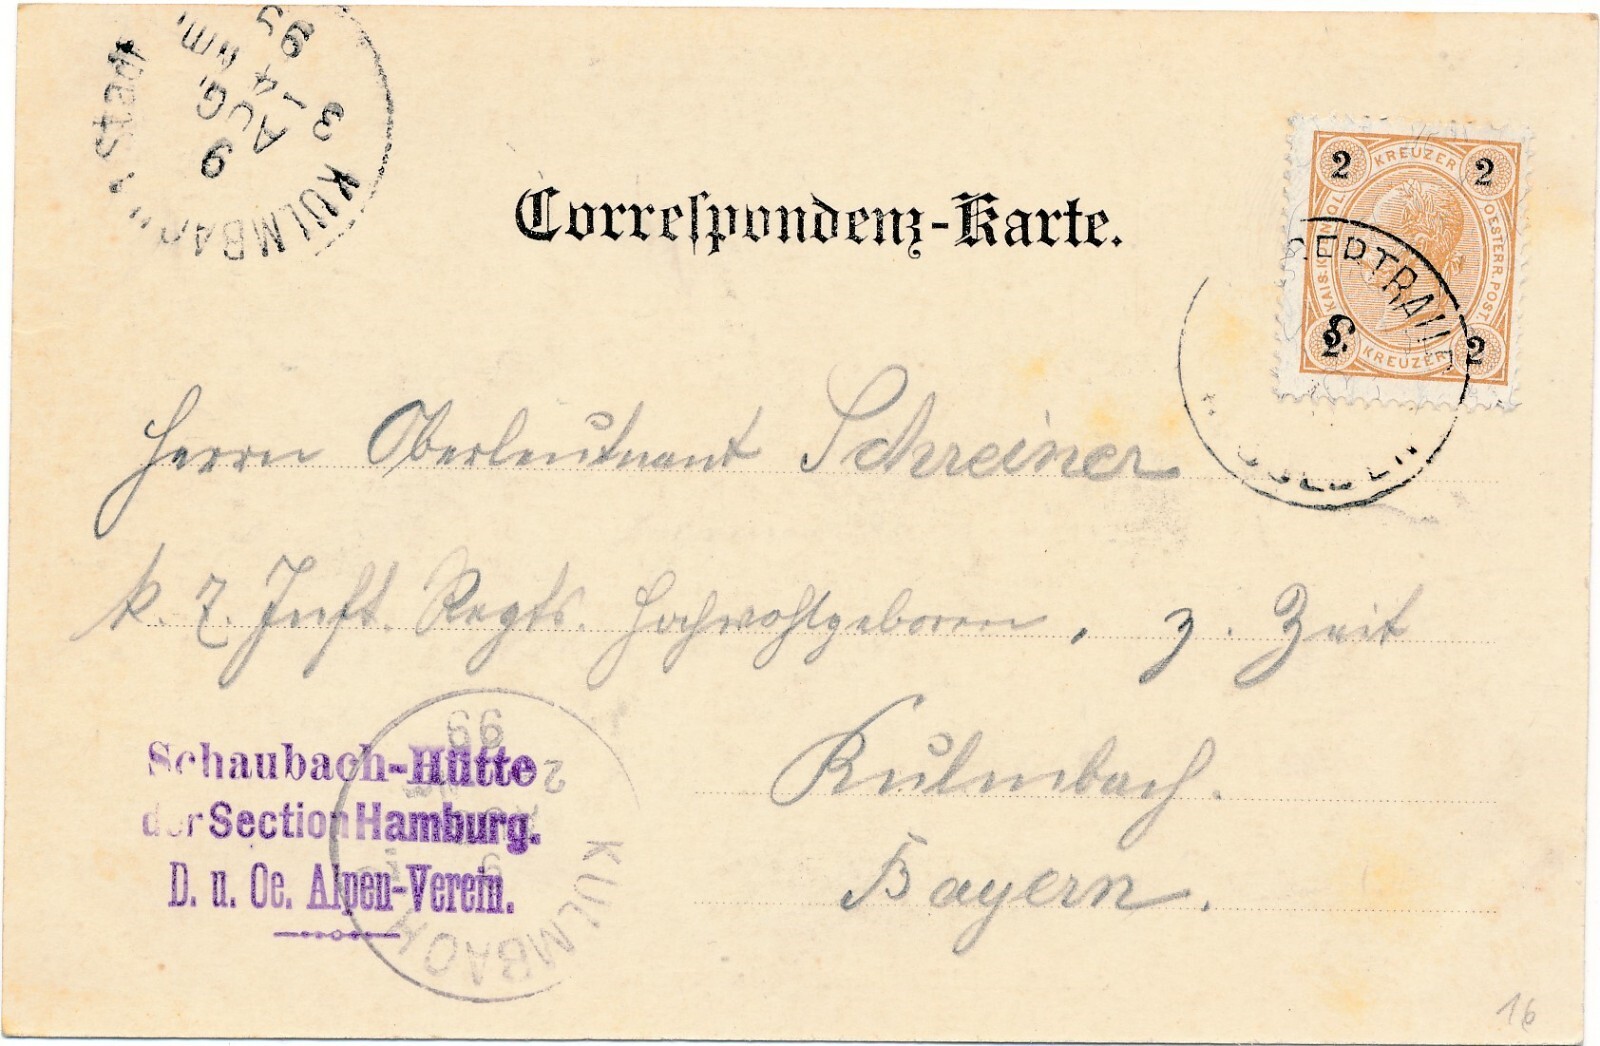 Correspondenz-Karte.
KREUZER
2 2 2 2
OESTERR. POST.
KREUZER
Herrn Oberleutnant Schreiner
k. 7. Inft. Regts. Hochwohlgeboren, z. Zeit
Kulmbach.
Bayern.
Schaubach-Hütte
der Section Hamburg.
D. u. Oe. Alpen-Verein.
KULMBACH
3
AUG.
9
KULMBACH
2
99
16